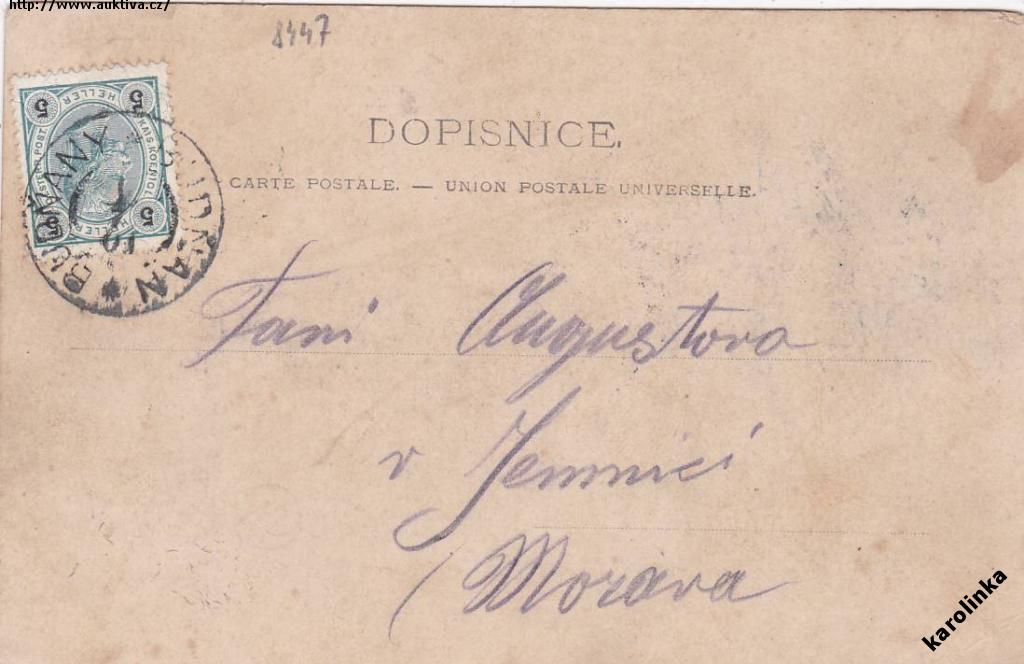 http://www.auktiva.cz/
8447
5 HELLER 5
KAIS.KOENIGL
5 HELLER 5
DOPISNICE.
CARTE POSTALE. — UNION POSTALE UNIVERSELLE.
BUDKAN
Paní Augustova
v Jemnici
Morava
karolinka